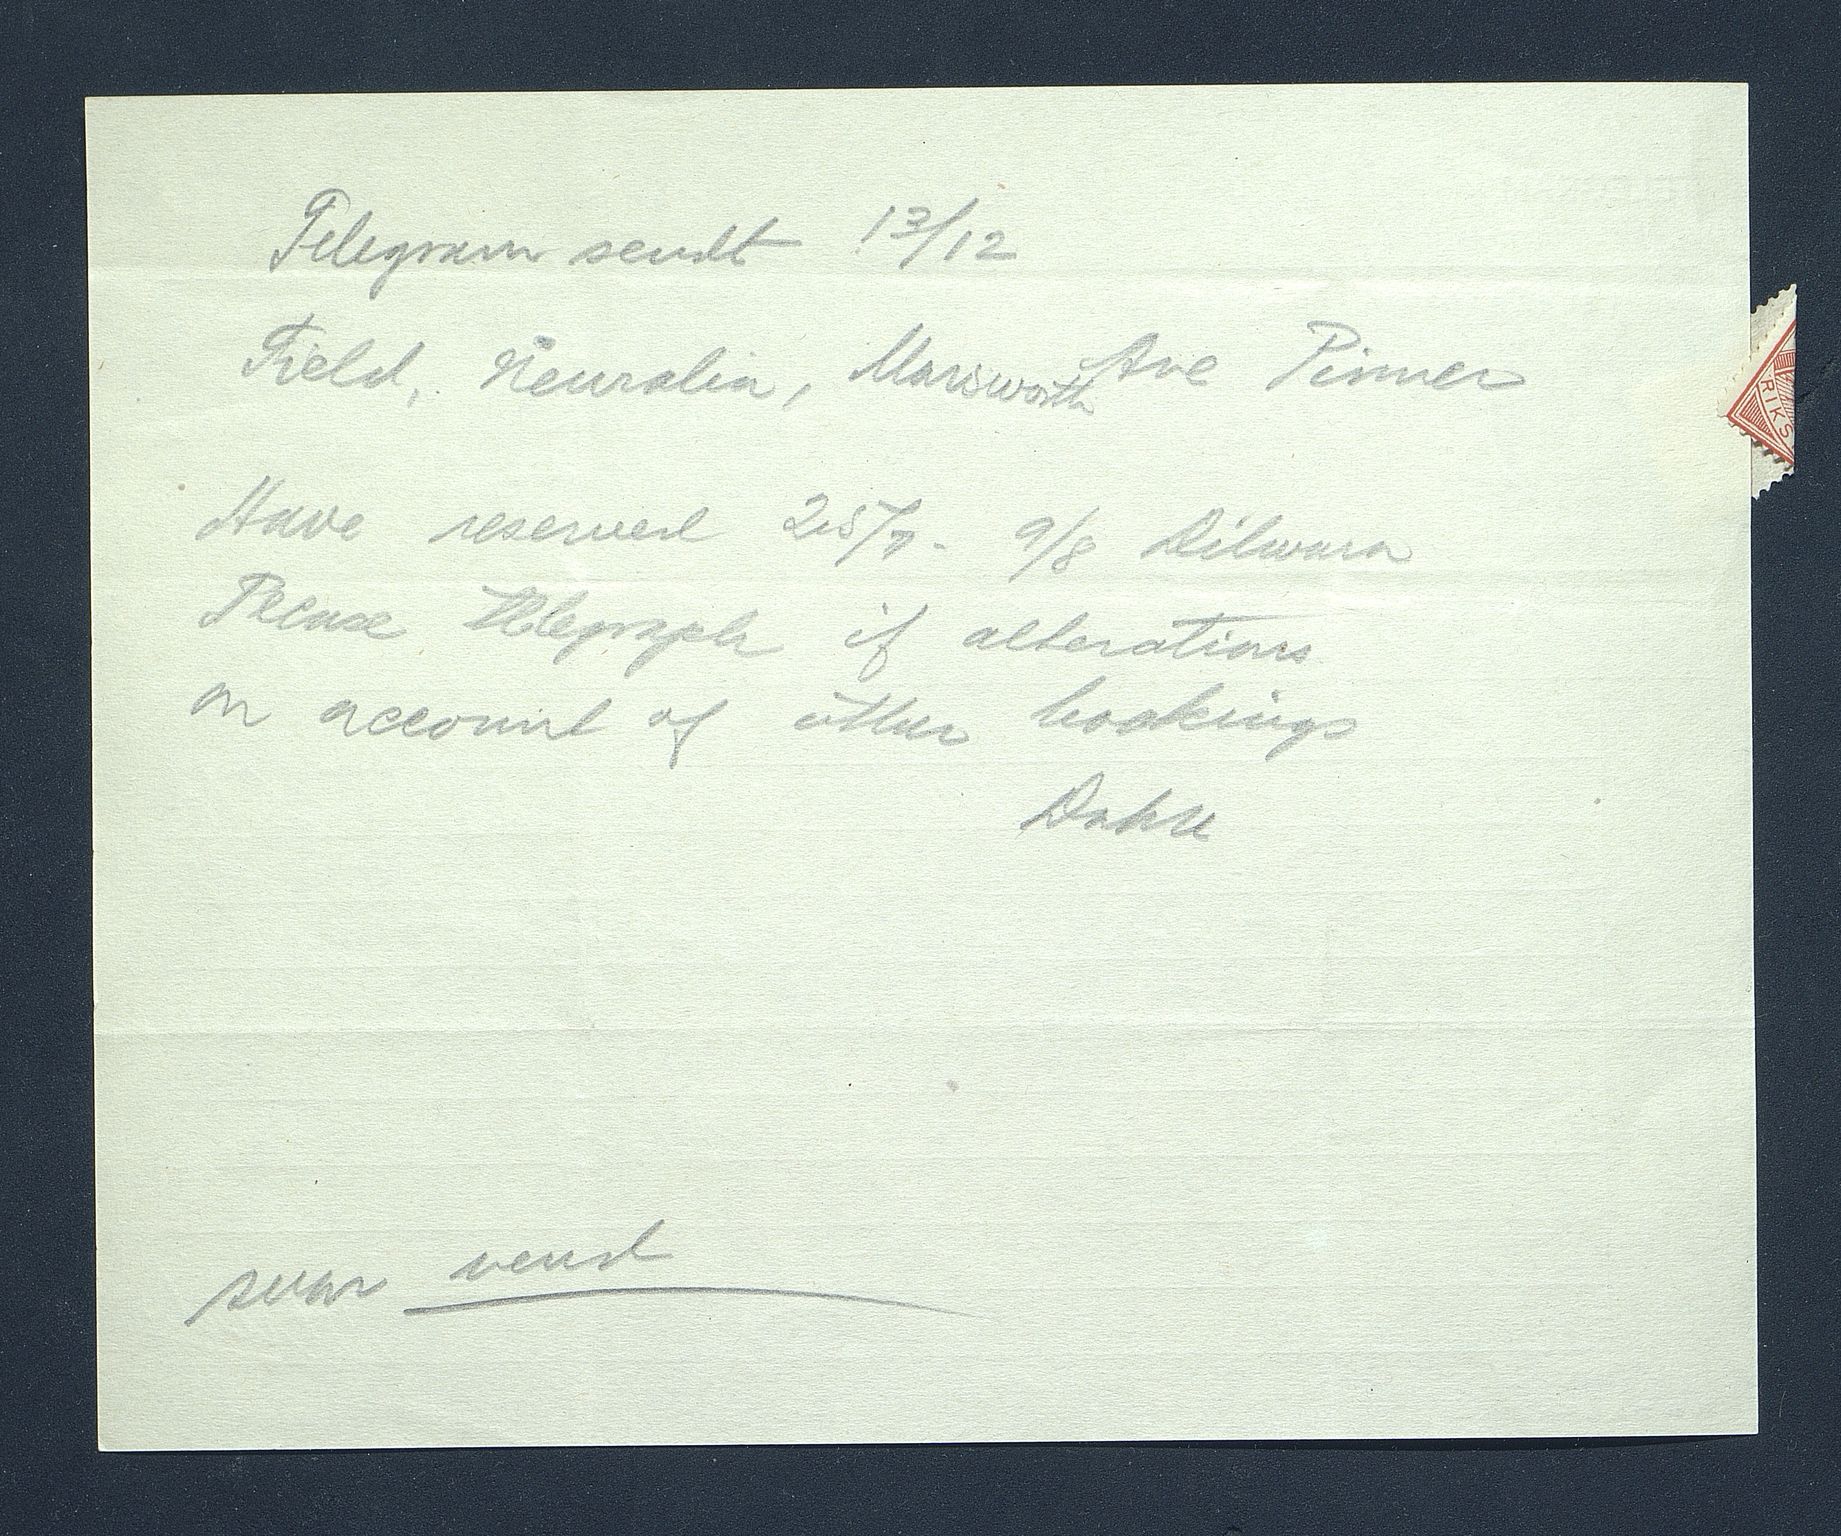 Telegram sendt 13/12
Field, Neuralia, Marsworth Ave Pinner
Have reserved 25/7 - 9/8 Dilwara
Please telegraph if alterations
on account of other bookings
Dahle
svar vend
RIKS